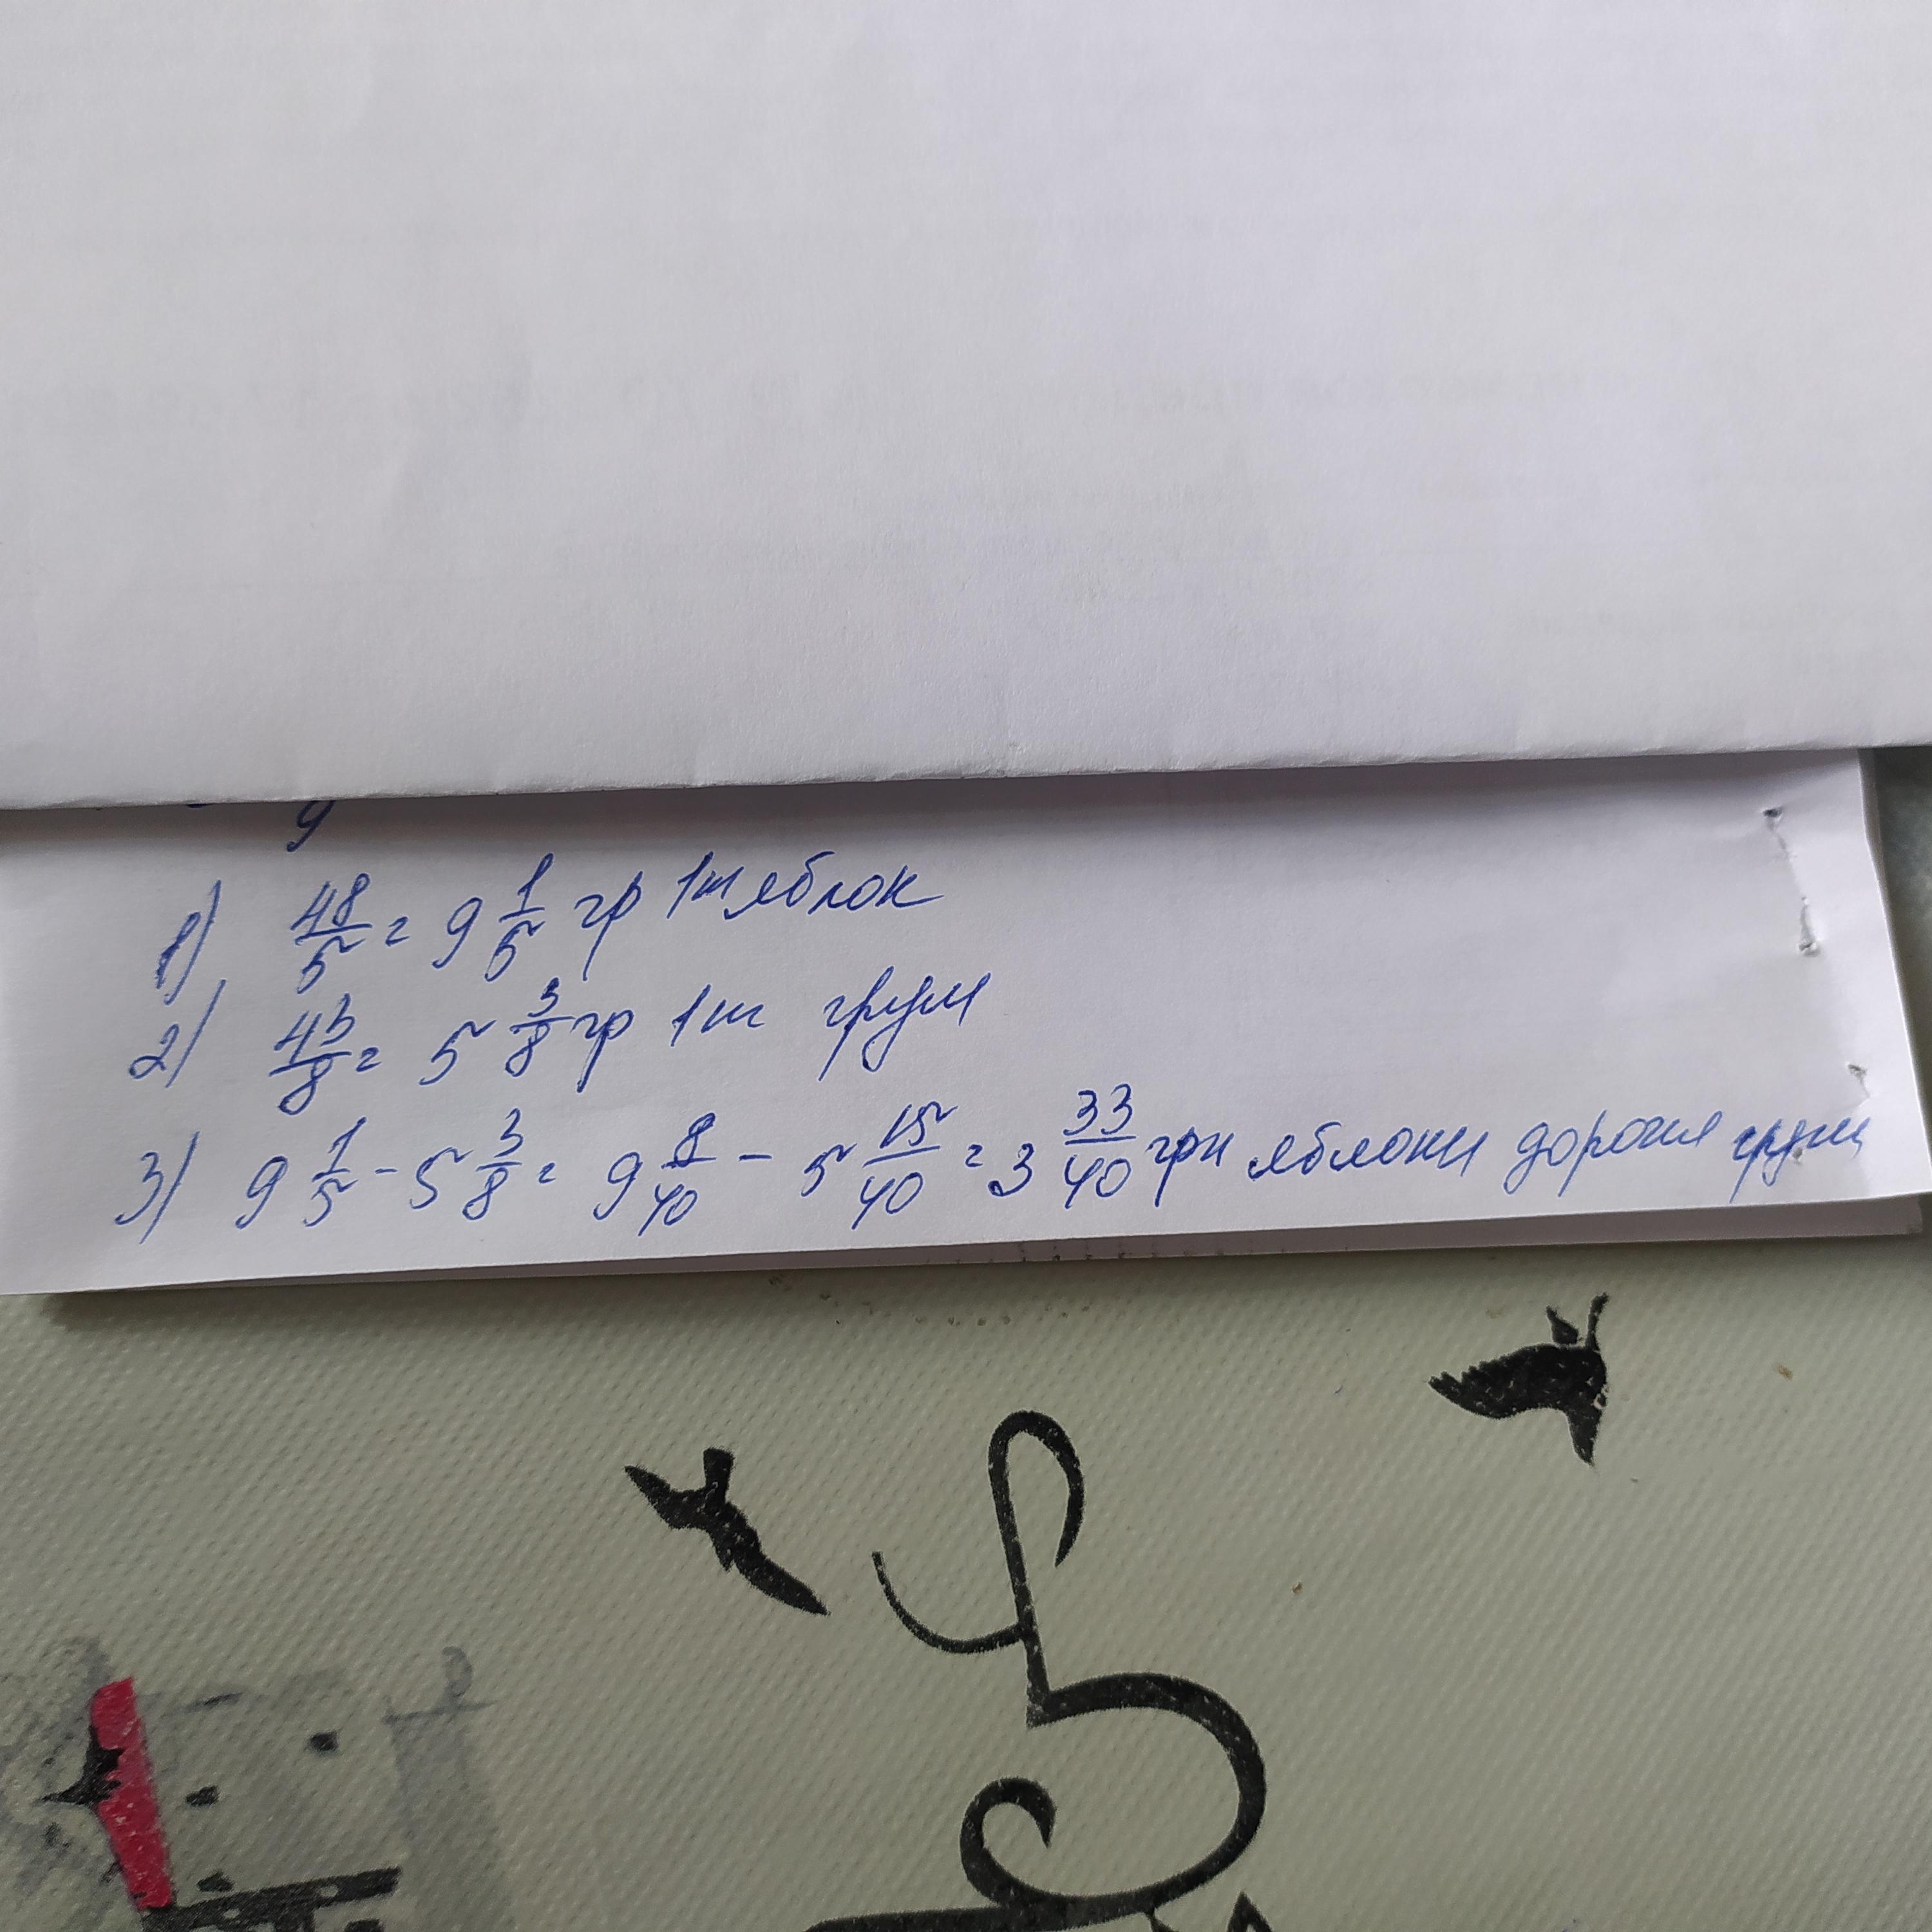 9
1) 48/5 = 9 1/5 гр 1ш яблок
2) 43/8 = 5 3/8 гр 1ш груш
3) 9 1/5 - 5 3/8 = 9 8/40 - 5 15/40 = 3 33/40 грн яблоки дорожя груш